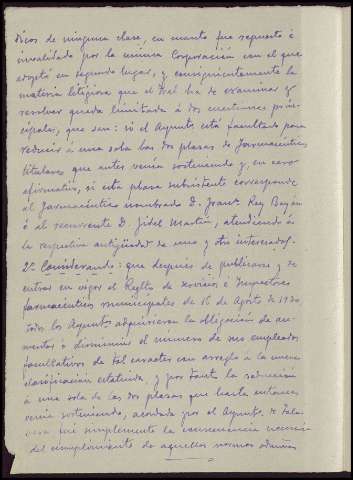 dicos de ninguna clase, en cuanto fue repuesto é
invalidado por la misma Corporación con el que
adoptó en segundo lugar, y consiguientemente la
materia litigiosa que el Tral ha de examinar y
resolver queda limitada á dos cuestiones prin-
cipales, que son: si el Ayunto está facultado para
reducir á una sola las dos plazas de Farmaceuticos
titulares que antes venía sosteniendo y, en caso
afirmativo, si esta plaza subsistente corresponde
al farmacéutico nombrado D. Franco Rey Bayón
ó al recurrente D. Fidel Martín, atendiendo á
la respectiva antigüedad de uno y otro interesados.
2º Considerando: que despues de publicarse y de
entrar en vigor el Reglto de servicios é Inspectores
farmacéuticos municipales de 16 de Agosto de 1930,
todos los Ayuntos adquirieron la obligación de au-
mentar ó disminuir el numero de sus empleados
facultativos de tal caracter con arreglo á la nueva
clasificación estatuida, y por tanto la reducción
á una sola de las dos plazas que hasta entonces
venía sosteniendo, acordada por el Ayunto de
fue simplemente la consecuencia
del cumplimiento de aquellas normas